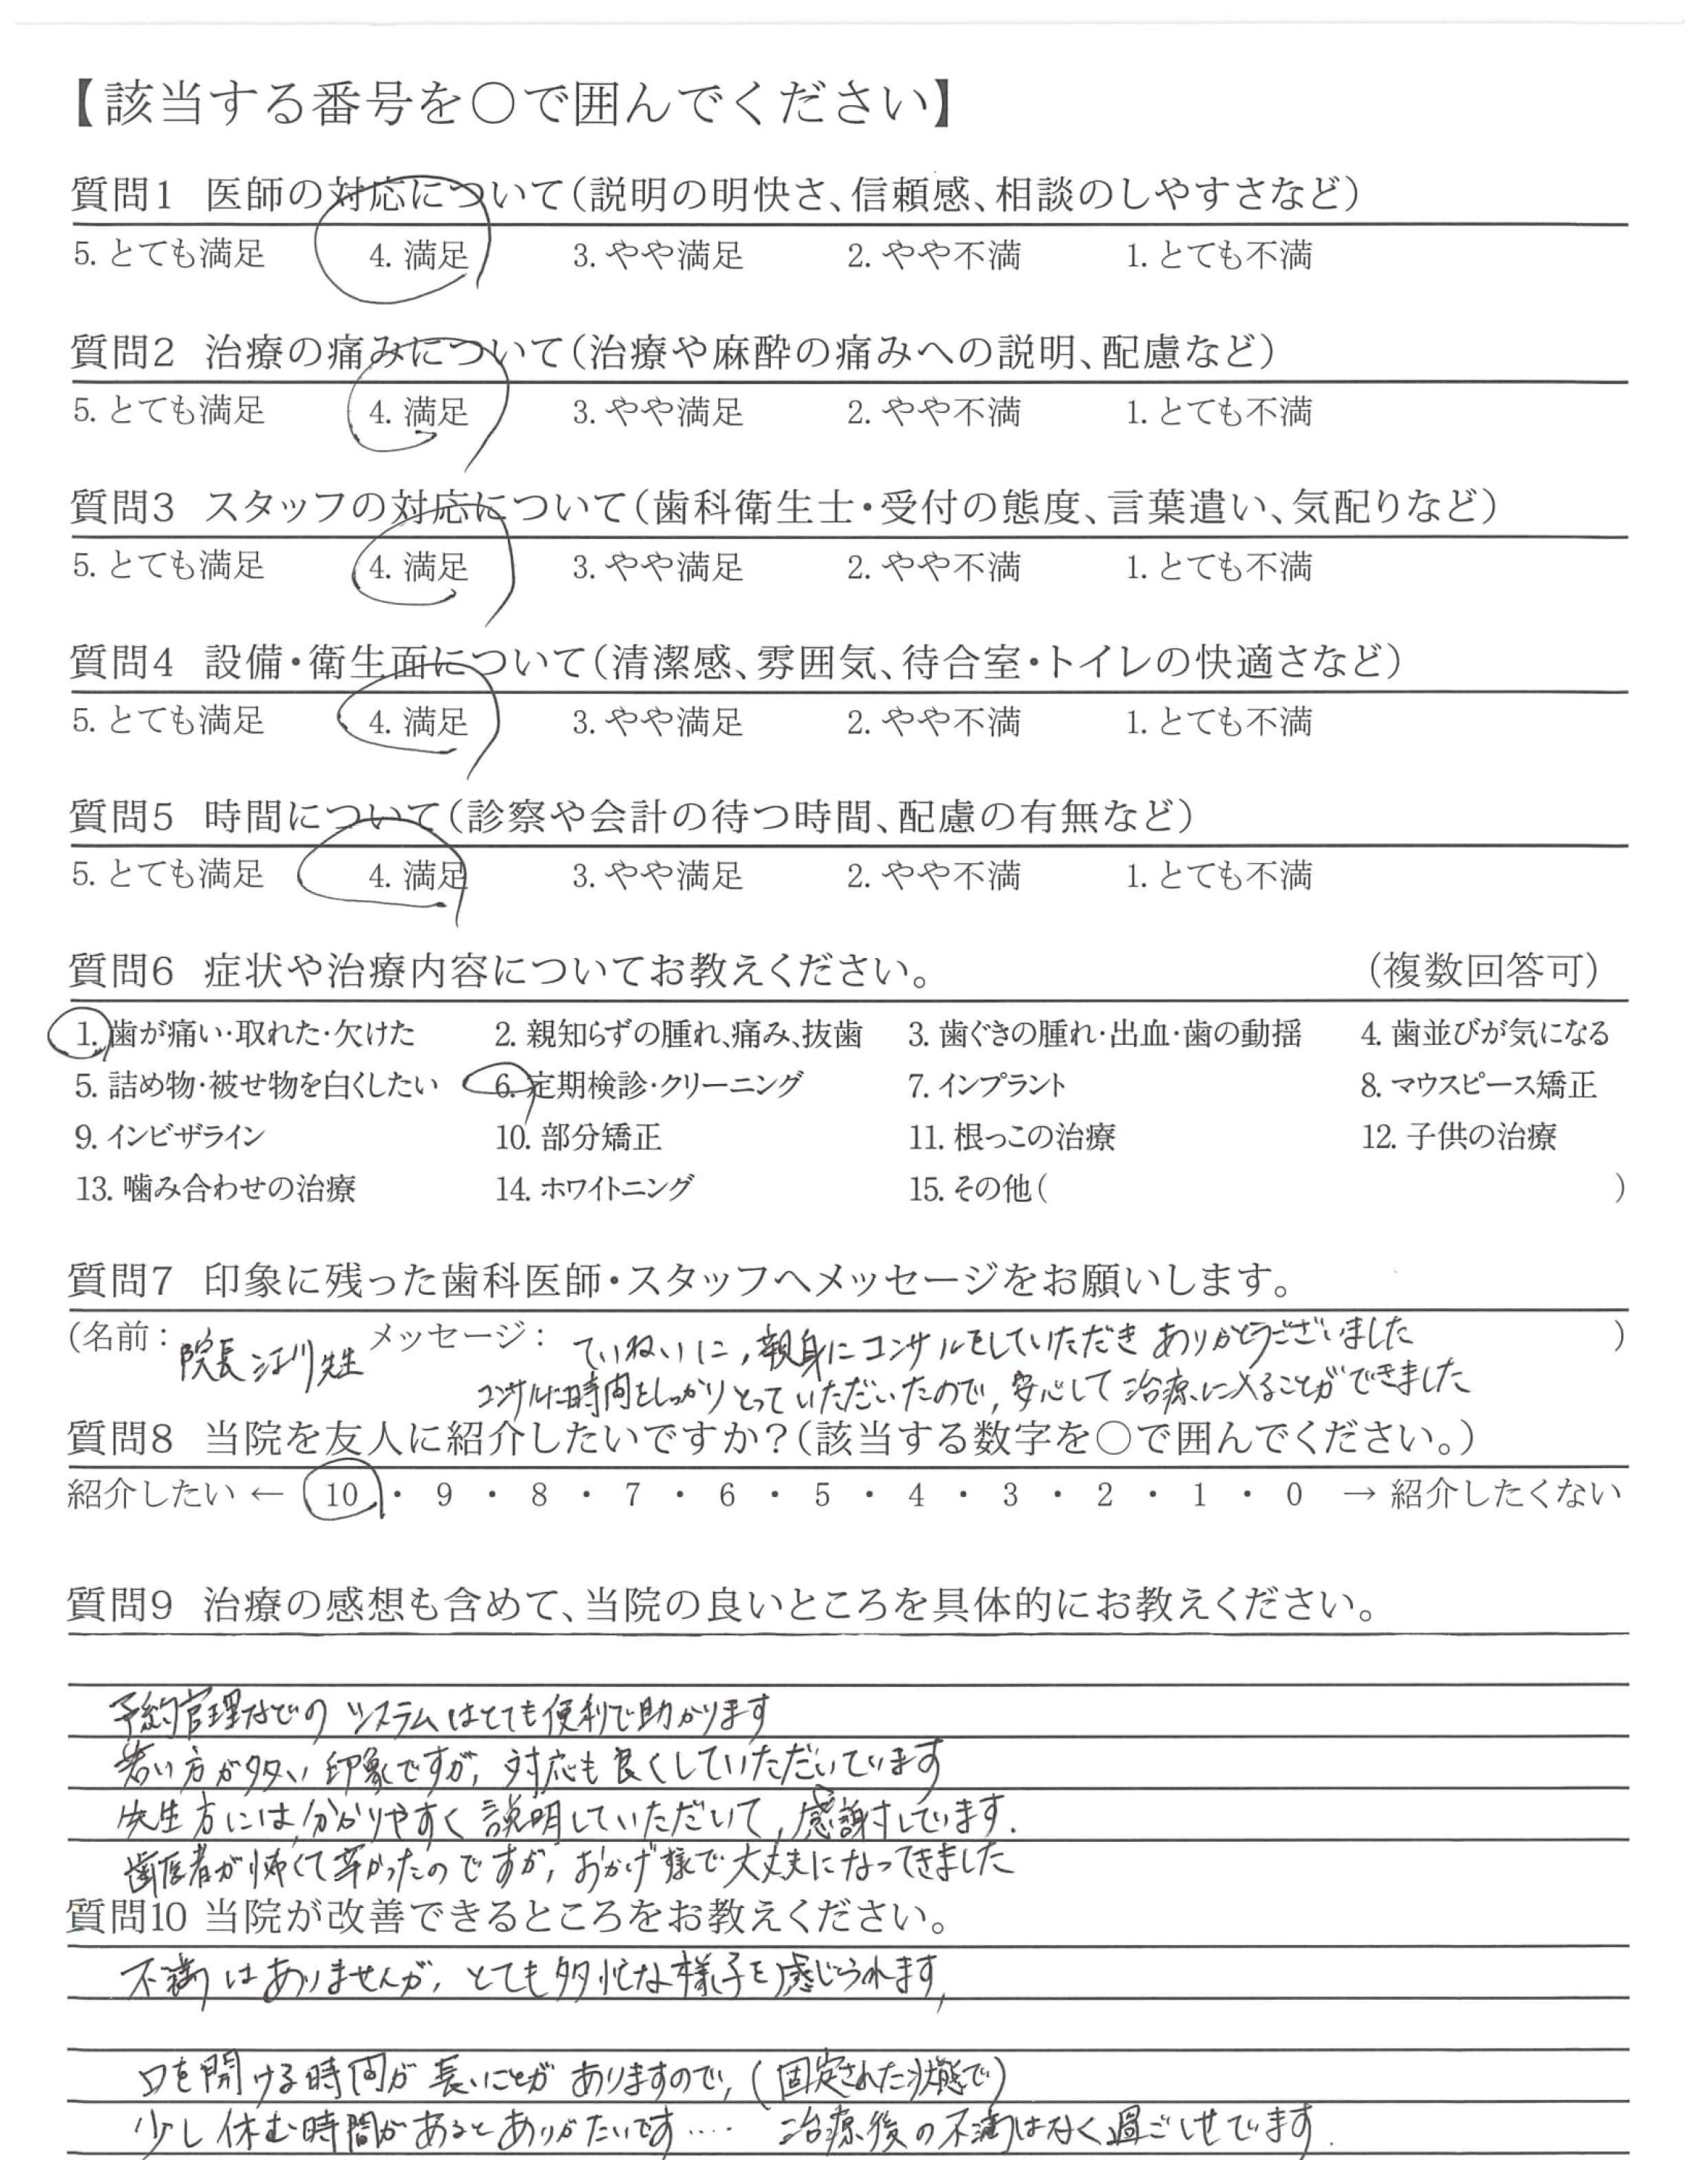 【該当する番号を○で囲んでください】
質問1 医師の対応について(説明の明快さ、信頼感、相談のしやすさなど)
5. とても満足 4. 満足 3. やや満足 2. やや不満 1. とても不満
質問2 治療の痛みについて(治療や麻酔の痛みへの説明、配慮など)
5. とても満足 4. 満足 3. やや満足 2. やや不満 1. とても不満
質問3 スタッフの対応について(歯科衛生士・受付の態度、言葉遣い、気配りなど)
5. とても満足 4. 満足 3. やや満足 2. やや不満 1. とても不満
質問4 設備・衛生面について(清潔感、雰囲気、待合室・トイレの快適さなど)
5. とても満足 4. 満足 3. やや満足 2. やや不満 1. とても不満
質問5 時間について(診察や会計の待つ時間、配慮の有無など)
5. とても満足 4. 満足 3. やや満足 2. やや不満 1. とても不満
質問6 症状や治療内容についてお教えください。 (複数回答可)
1. 歯が痛い・取れた・欠けた 2. 親知らずの腫れ、痛み、抜歯 3. 歯ぐきの腫れ・出血・歯の動揺 4. 歯並びが気になる
5. 詰め物・被せ物を白くしたい 6. 定期検診・クリーニング 7. インプラント 8. マウスピース矯正
9. インビザライン 10. 部分矯正 11. 根っこの治療 12. 子供の治療
13. 噛み合わせの治療 14. ホワイトニング 15. その他( )
質問7 印象に残った歯科医師・スタッフへメッセージをお願いします。
(名前: 院長 江川先生 メッセージ: ていねいに,親身にコンサルをしていただき ありがとうございました )
コンサルに時間をしっかりとっていただいたので,安心して治療に入ることができました
質問8 当院を友人に紹介したいですか?(該当する数字を○で囲んでください。)
紹介したい ← 10 ・ 9 ・ 8 ・ 7 ・ 6 ・ 5 ・ 4 ・ 3 ・ 2 ・ 1 ・ 0 → 紹介したくない
質問9 治療の感想も含めて、当院の良いところを具体的にお教えください。
予約管理などの システムはとても便利で助かります
若い方が多い印象ですが,対応も良くしていただいています
先生方には,分かりやすく説明していただいて,感謝しています.
歯医者が怖くて辛かったのですが,おかげ様で大丈夫になってきました
質問10 当院が改善できるところをお教えください。
不満はありませんが,とても多忙な様子を感じられます,
口を開ける時間が長いことがありますので,(固定された状態で)
少し休む時間があるとありがたいです‥‥ 治療後の不満はなく過ごせています.